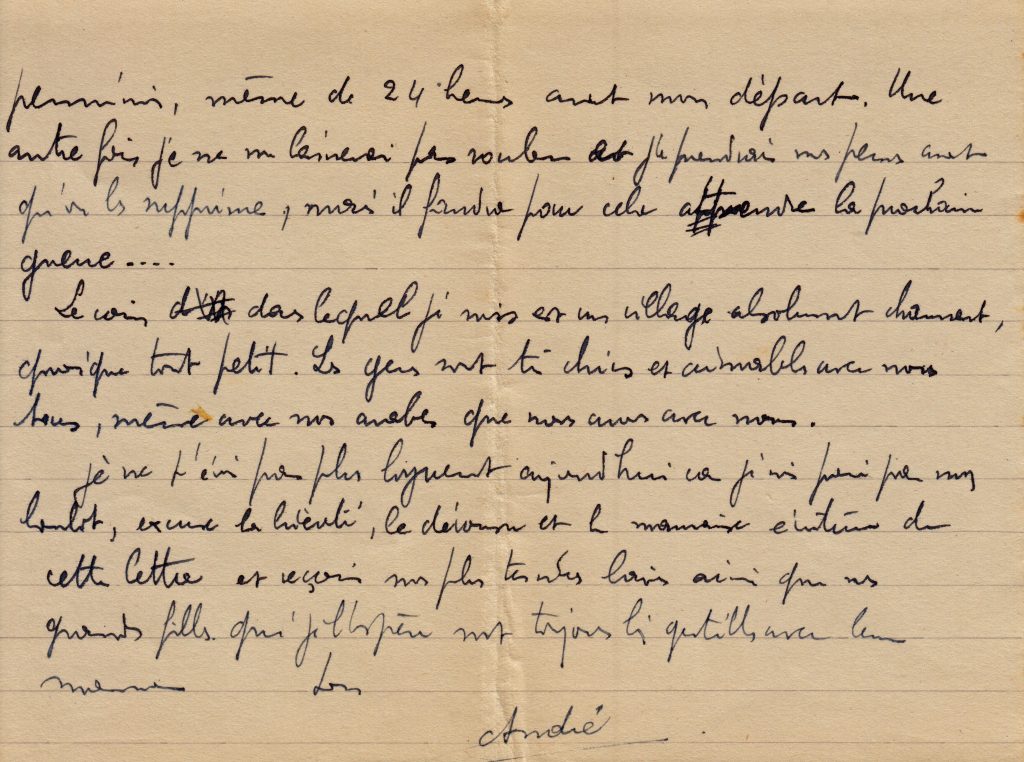 permission, même de 24 heures avant mon départ. Une
autre fois je ne me laisserai pas rouler et je prendrai mes perms avant
qu'on les supprime, mais il faudra pour cela attendre la prochaine
guerre ....
Le coin dans lequel je suis est un village absolument charmant,
quoique tout petit. Les gens sont très chics et aimables avec nous
tous, même avec nos arabes que nous avons avec nous.
je ne t'écris pas plus longuement aujourd'hui car je n'ai pas fini mon
boulot, excuse la brièveté, le décousu et la mauvaise écriture de
cette lettre et reçois mes plus tendres baisers ainsi que nos
grandes filles qui je l'espère sont toujours gentilles avec leur
maman
André